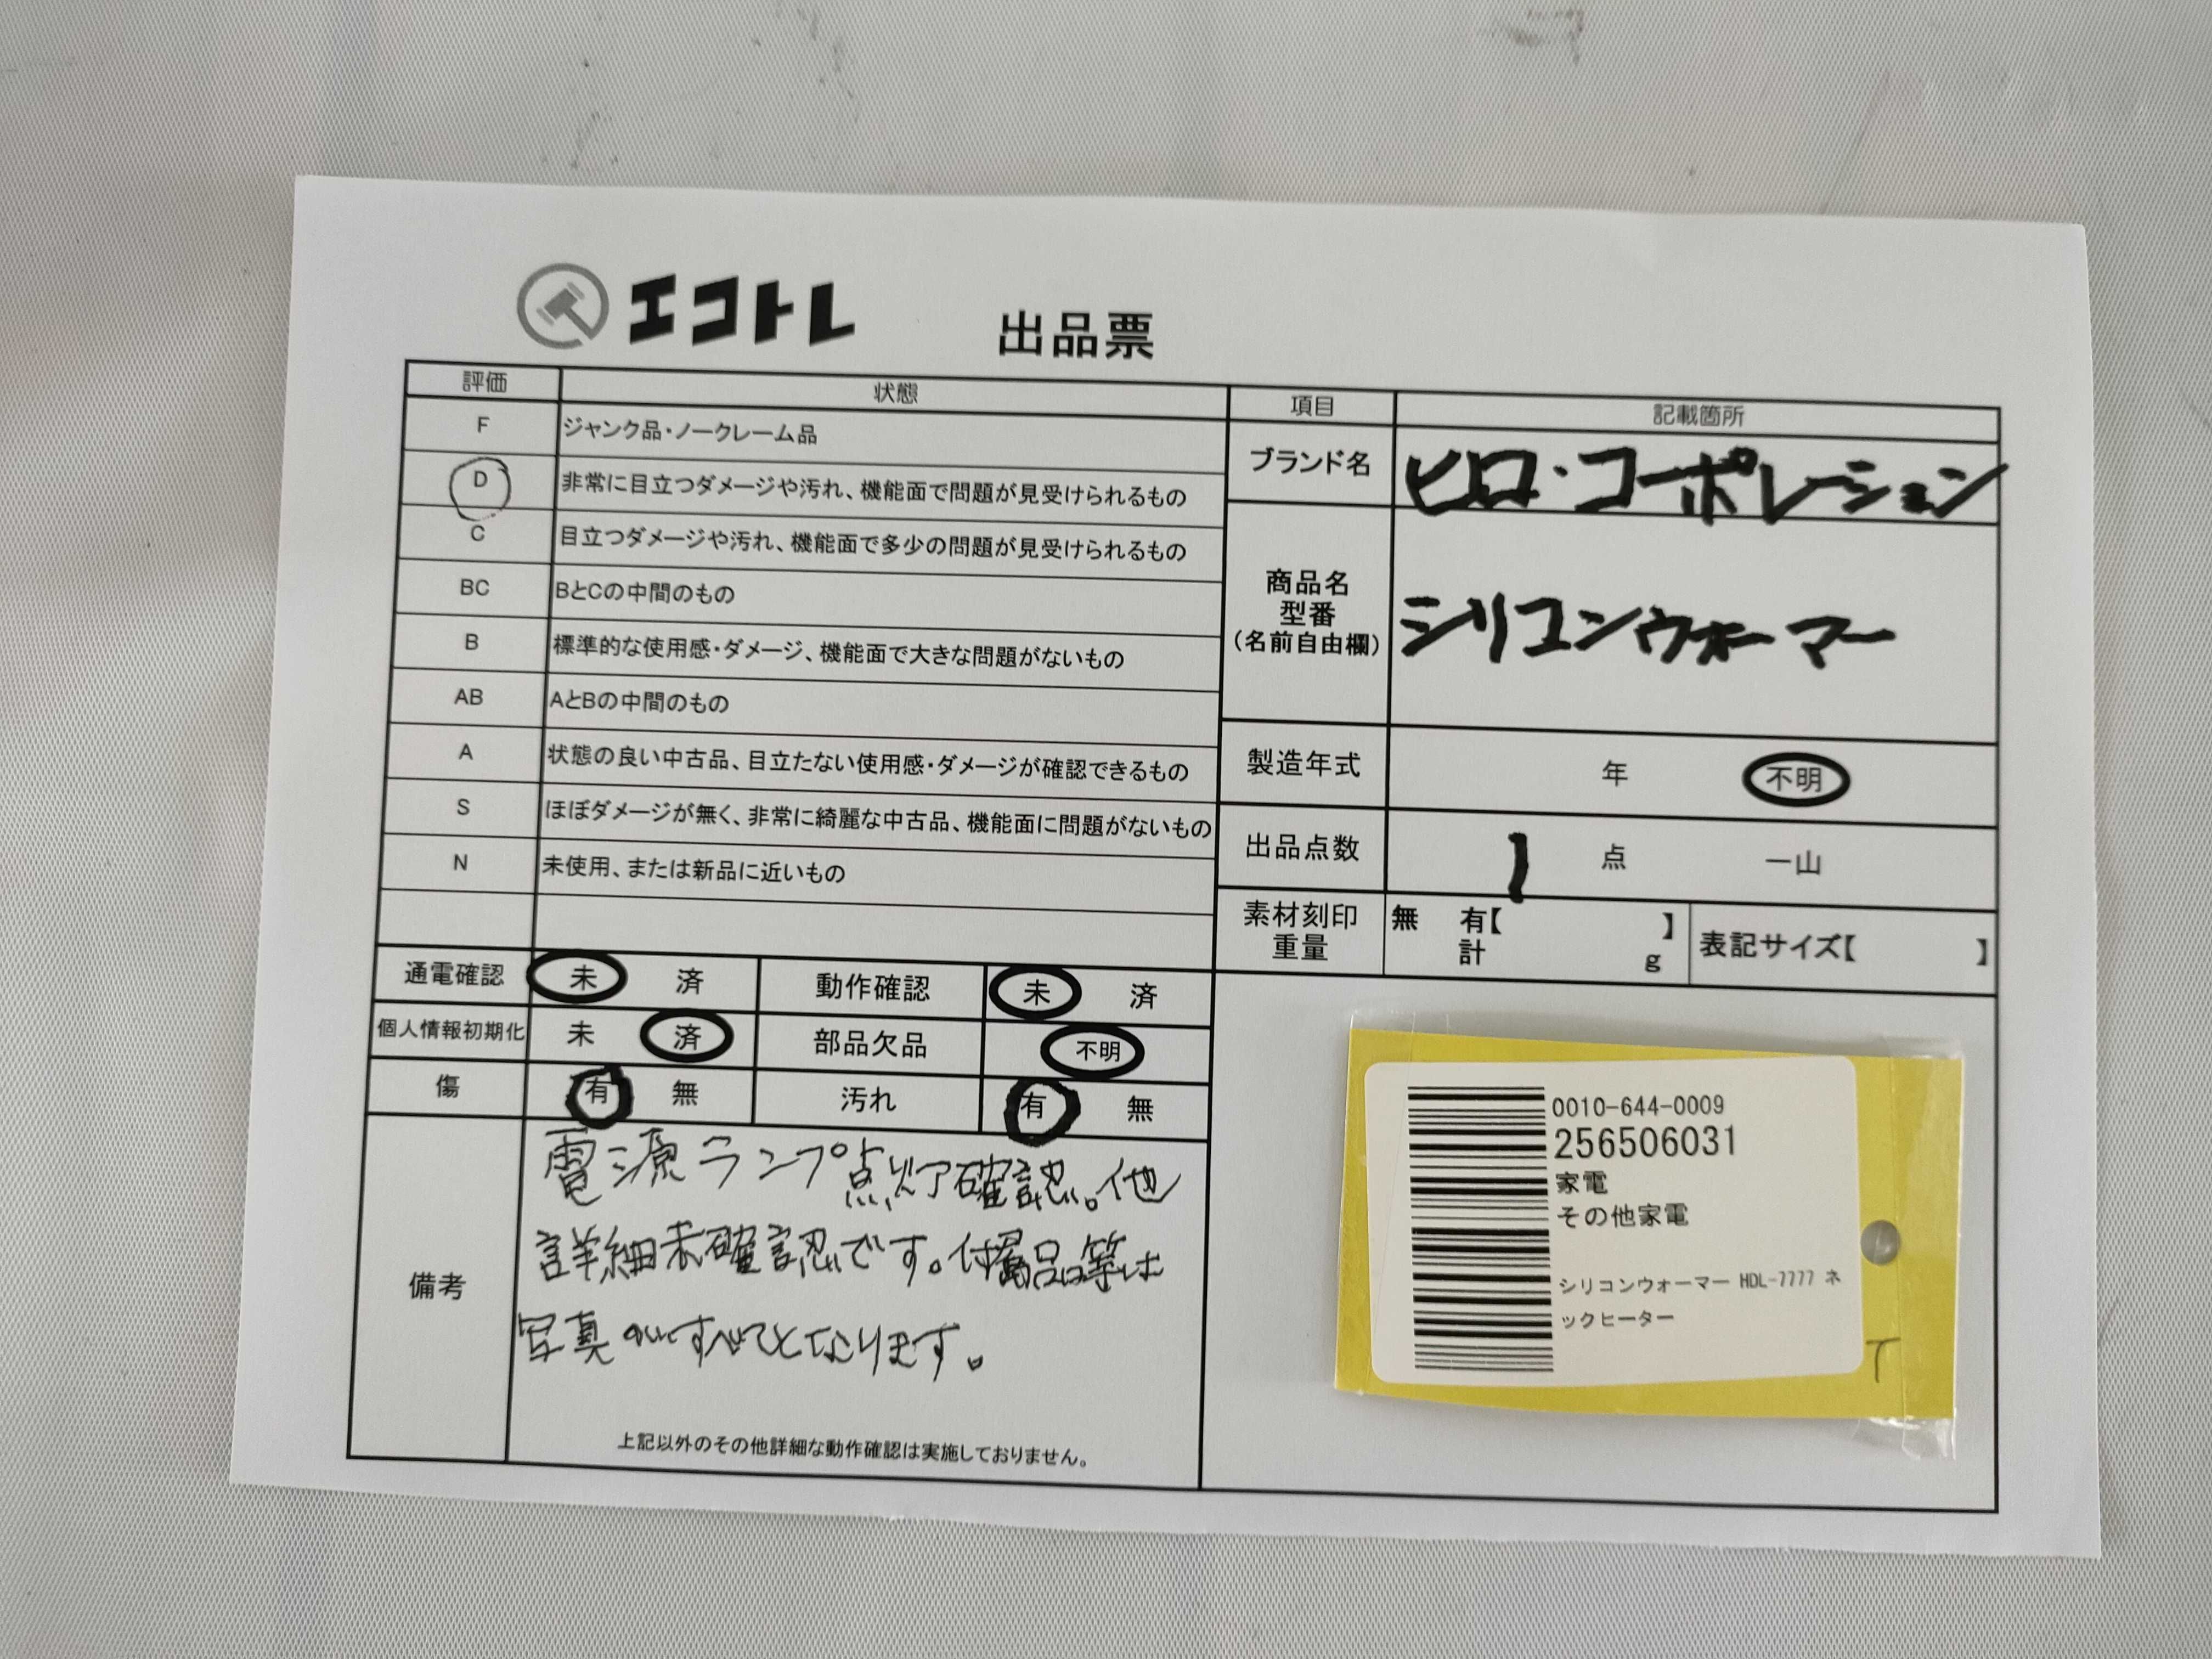 エコトレ 出品票
評価 状態
F ジャンク品・ノークレーム品
D 非常に目立つダメージや汚れ、機能面で問題が見受けられるもの
C 目立つダメージや汚れ、機能面で多少の問題が見受けられるもの
BC BとCの中間のもの
B 標準的な使用感・ダメージ、機能面で大きな問題がないもの
AB AとBの中間のもの
A 状態の良い中古品、目立たない使用感・ダメージが確認できるもの
S ほぼダメージが無く、非常に綺麗な中古品、機能面に問題がないもの
N 未使用、または新品に近いもの
通電確認 未 済 動作確認 未 済
個人情報初期化 未 済 部品欠品 不明
傷 有 無 汚れ 有 無
備考
電源ランプ点灯確認。他
詳細未確認です。付属品等は
写真がすべてとなります。
上記以外のその他詳細な動作確認は実施しておりません。
項目 記載箇所
ブランド名 ヒロ・コーポレーション
商品名
型番
(名前自由欄)
シリコンウォーマー
製造年式 年 不明
出品点数 1 点 一山
素材刻印 無 有【 】
重量 計 g
表記サイズ【 】
0010-644-0009
256506031
家電
その他家電
シリコンウォーマー HDL-7777 ネ
ックヒーター
T